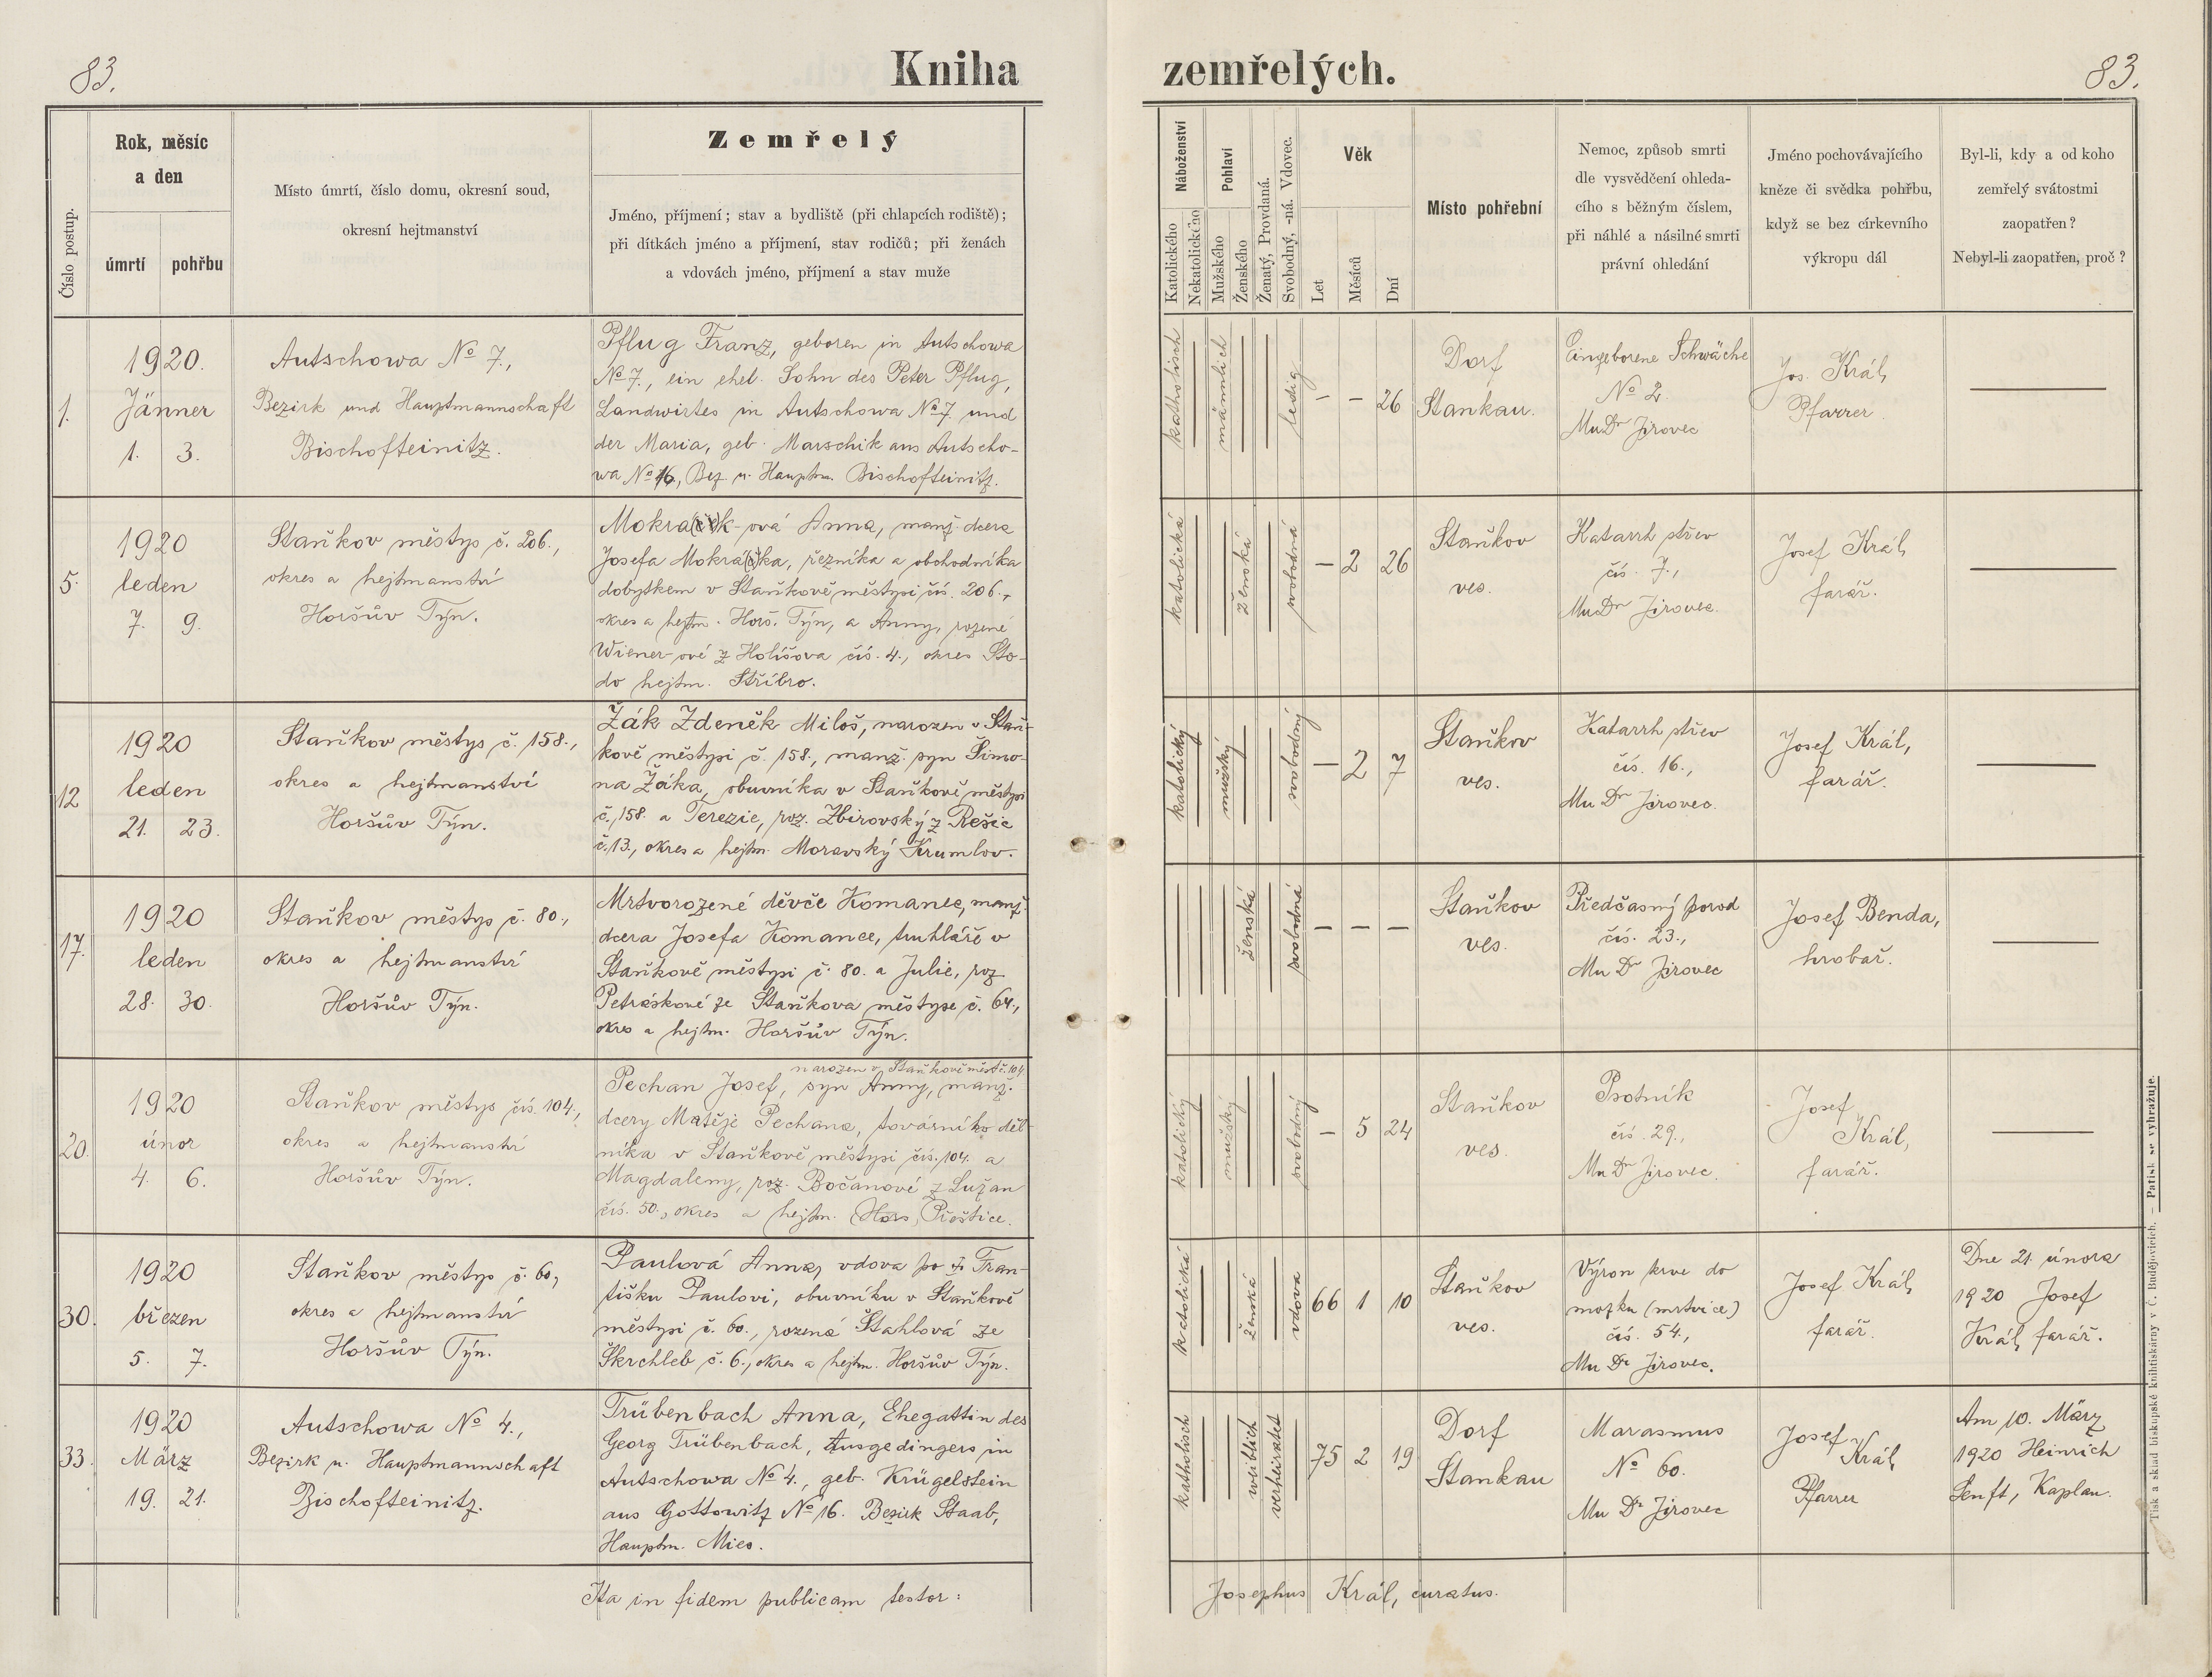 83.
Kniha
zemřelých.
83.
Číslo postup.
Rok, měsíc
a den
úmrtí
pohřbu
Místo úmrtí, číslo domu, okresní soud,
okresní hejtmanství
Zemřelý
Jméno, příjmení; stav a bydliště (při chlapcích rodiště);
při dítkách jméno a příjmení, stav rodičů; při ženách
a vdovách jméno, příjmení a stav muže
Náboženství
Katolického
Nekatolického
Pohlaví
Mužského
Ženského
Ženatý, Provdaná.
Svobodný, -ná. Vdovec.
Věk
Let
Měsíců
Dní
Místo pohřební
Nemoc, způsob smrti
dle vysvědčení ohleda-
cího s běžným číslem,
při náhlé a násilné smrti
právní ohledání
Jméno pochovávajícího
kněze či svědka pohřbu,
když se bez církevního
výkropu dál
Byl-li, kdy a od koho
zemřelý svátostmi
zaopatřen?
Nebyl-li zaopatřen, proč?
1.
1920.
Jänner
1. 3.
Autschowa No 7.,
Bezirk und Hauptmannschaft
Bischofteinitz.
Pflug Franz, geboren in Autschowa
No 7., ein ehel. Sohn des Peter Pflug,
Landwirtes in Autschowa No 7. und
der Maria, geb. Marschik aus Autscho-
wa No 16, Bez. u. Hauptm. Bischofteinitz.
katholisch
männlich
ledig
– – 26
Dorf
Stankau.
Eingeborene Schwäche
No 2.
MuDr Jirovec
Jos. Král,
Pfarrer.
5.
1920
leden
7. 9.
Staňkov městys č. 206.,
okres a hejtmanství
Horšův Týn.
Mokra(če)k-ová Anna, manž. dcera
Josefa Mokrá(č)ka, řezníka a obchodníka
dobytkem v Staňkově městysi čís. 206.,
okres a hejtm. Horš. Týn, a Anny, rozené
Wiener-ové z Holíšova čís. 4., okres Sto-
do hejtm. Stříbro.
katolická
ženská
svobodná
– 2 26
Staňkov
ves.
Katarrh střev
čís. 7.,
MuDr Jirovec.
Josef Král,
farář.
12
1920
leden
21. 23.
Staňkov městys č. 158.,
okres a hejtmanství
Horšův Týn.
Žák Zdeněk Miloš, narozen v Staň-
kově městysi č. 158., manž. syn Šimo-
na Žáka, obuvníka v Staňkově městysi
č. 158. a Terezie, roz. Zbirovský z Rešic
č. 13., okres a hejtm. Moravský Krumlov.
katolický
mužský
svobodný
– 2 7
Staňkov
ves.
Katarrh střev
čís. 16.,
Mu Dr Jirovec.
Josef Král,
farář.
17.
1920
leden
28. 30.
Staňkov městys č. 80.,
okres a hejtmanství
Horšův Týn.
Mrtvorozené děvče Komanec, manž.
dcera Josefa Komance, truhláře v
Staňkově městysi č. 80. a Julie, roz.
Petráskové ze Staňkova městyse č. 64.,
okres a hejtm. Horšův Týn.
ženská
svobodná
– – –
Staňkov
ves.
Předčasný porod
čís. 23.,
Mu Dr Jirovec
Josef Benda,
hrobař.
20.
1920
únor
4. 6.
Staňkov městys čís. 104.,
okres a hejtmanství
Horšův Týn.
narozen v Staňkově měst. č. 104
Pechan Josef, syn Anny, manž.
dcery Matěje Pechana, továrního děl-
níka v Staňkově městysi čís. 104. a
Magdaleny, roz. Bočanové z Lužan
čís. 50., okres a hejtm. (Hors) Přeštice.
katolický
mužský
svobodný
– 5 24
Staňkov
ves.
Psotník
čís. 29.,
Mu Dr Jirovec.
Josef
Král,
farář.
30.
1920
březen
5. 7.
Staňkov městys č. 60.,
okres a hejtmanství
Horšův Týn.
Paulová Anna, vdova po † Fran-
tišku Paulovi, obuvníku v Staňkově
městysi č. 60., rozená Stahlová ze
Škrchleb č. 6., okres a hejtm. Horšův Týn.
katolická
ženská
vdova
66 1 10
Staňkov
ves.
Výron krve do
mozku (mrtvice)
čís. 54.,
Mu Dr Jirovec.
Josef Král,
farář.
Dne 21. února
1920 Josef
Král, farář.
33.
1920
März
19. 21.
Autschowa No 4.,
Bezirk u. Hauptmannschaft
Bischofteinitz.
Trübenbach Anna, Ehegattin des
Georg Trübenbach, Ausgedingers in
Autschowa No 4., geb. Krügelstein
aus Gottowitz No 16. Bezirk Staab,
Hauptm. Mies.
katholisch
weiblich
verheiratet
75 2 19
Dorf
Stankau
Marasmus
No 60.
Mu Dr Jirovec
Josef
Král,
Pfarrer
Am 10. März
1920 Heinrich
Senft, Kaplan.
Ita in fidem publicam testor:
Josephus Král, curatus.
Tisk a sklad biskupské knihtiskárny v Č. Budějovicích. – Patisk se vyhražuje.